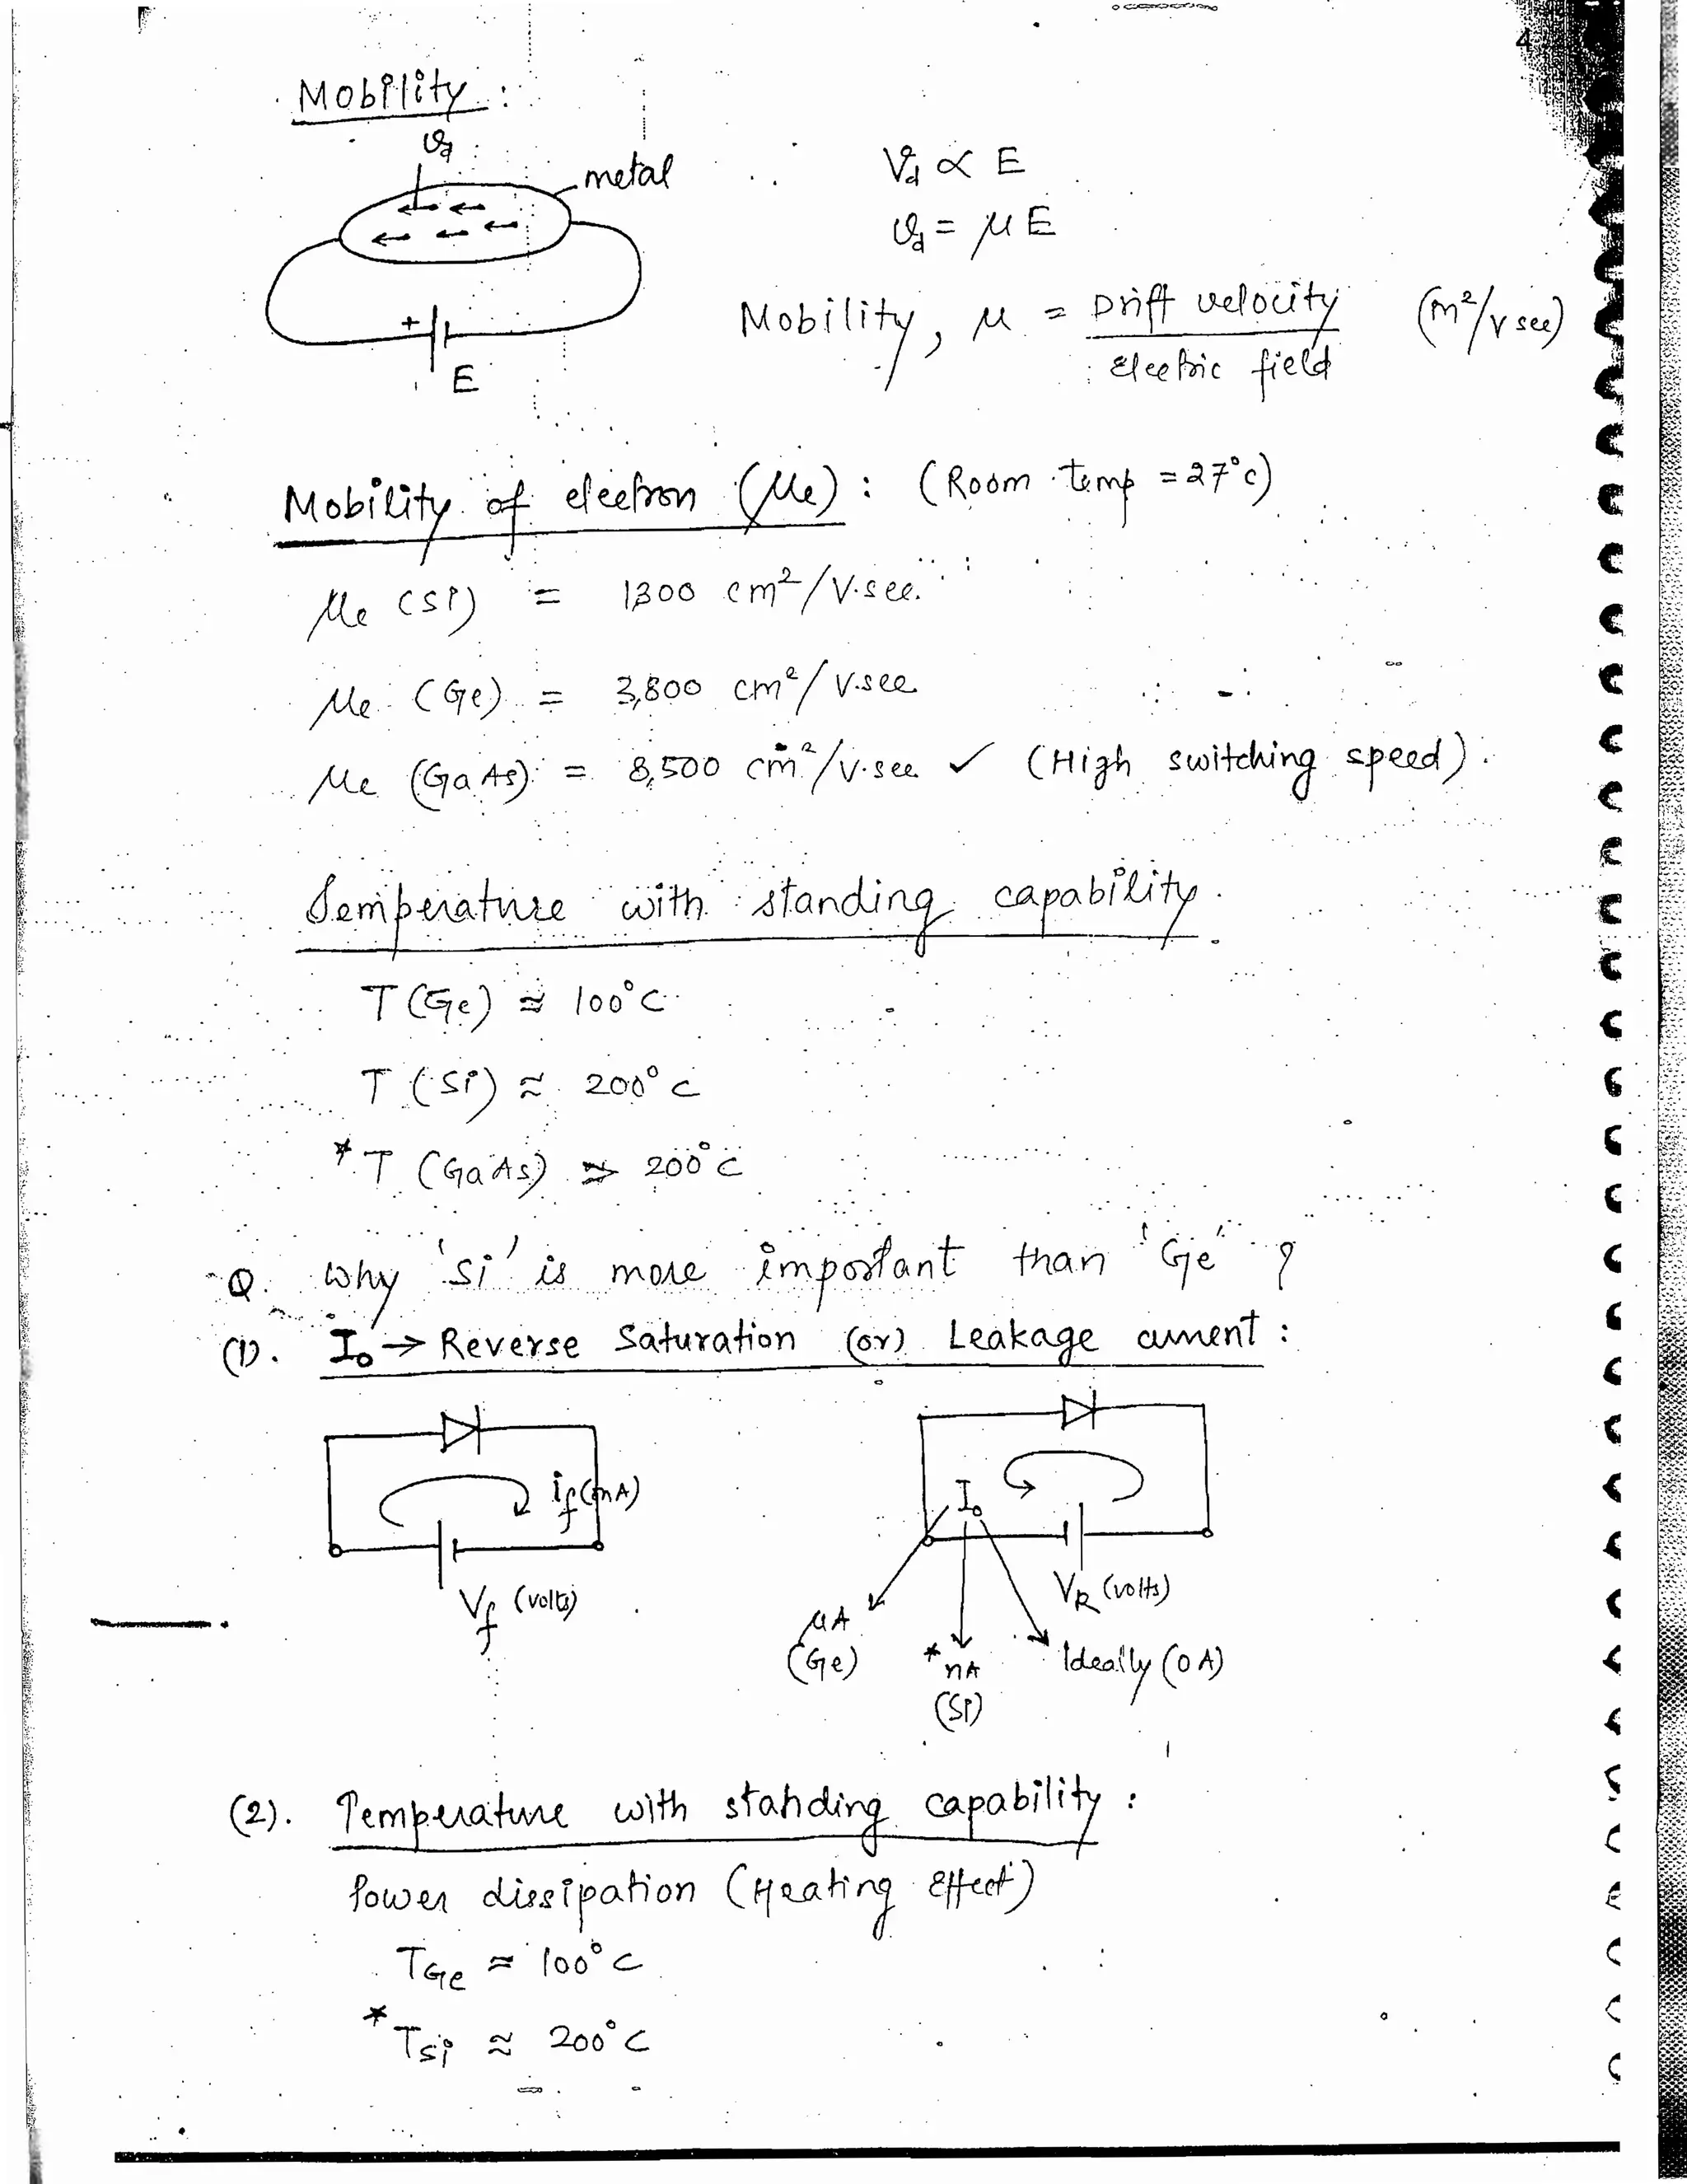 4
Mobility :
vd
metal
+
E
Vd ∝ E
vd = μE
Mobility, μ = Drift velocity / Electric field (m²/v sec)
Mobility of electron (μe) : (Room temp = 27°c)
μe (Si) = 1300 cm²/V.sec.
μe (Ge) = 3,800 cm²/V.sec
μe (GaAs) = 8,500 cm²/V.sec ✓ (High switching speed).
Temperature with standing capability.
T (Ge) ≈ 100°C
T (Si) ≈ 200°C
* T (GaAs) ≈> 200°C
Q. Why 'Si' is more important than 'Ge' ?
(1). I₀ → Reverse Saturation (or) Leakage current :
if (mA)
Vf (volts)
I₀
VR (volts)
μA
(Ge)
* nA
(Si)
Ideally (0 A)
(2). Temperature with standing capability :
Power dissipation (Heating Effect)
TGe ≈ 100°C
* TSi ≈ 200°C